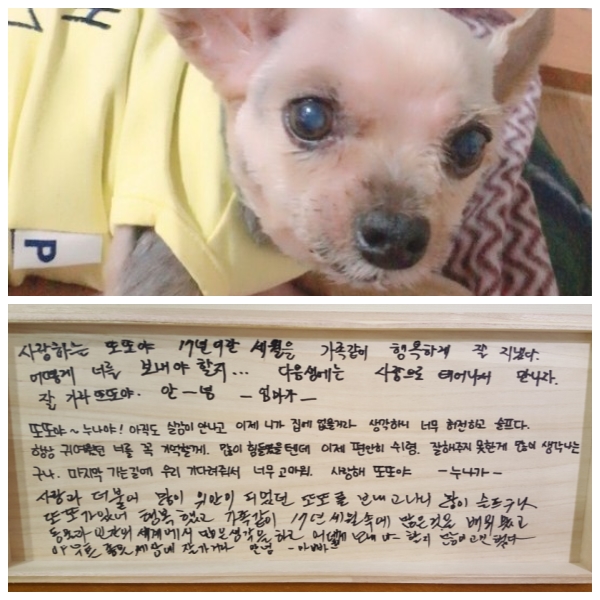 P
사랑하는 또또야 17년이란 세월을 가족같이 행복하게 잘 지냈다.
어떻게 너를 보내야 할지... 다음생에는 사람으로 태어나서 만나자.
잘 가라 또또야. 안-녕 -엄마가-
또또야~ 누나야! 아직도 실감이 안나고 이제 니가 집에 없을거라 생각하니 너무 허전하고 슬프다.
항상 귀여웠던 너를 꼭 기억할게. 많이 힘들었을텐데 이제 편안히 쉬렴. 잘해주지 못한게 많이 생각나는
구나. 마지막 가는길에 우리 기다려줘서 너무 고마워. 사랑해 또또야 -누나가-
사랑과 더불어 많이 위안이 되었던 또또를 보내고나니 맘이 슬프구나
또또가있어 행복했고 가족같이 17년 세월속에 많은것을 배워웠고
동물과 인간의 세계에서 많은생각을 하고 어떻게 보내야 할지
아무튼 좋은 세상에 잘가거라 안녕 -아빠-